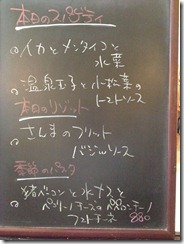 本日のスパゲティ
イカとメンタイコと
水菜
温泉玉子と小松菜の
トマトソース
本日のリゾット
さんまのフリット
バジルソース
季節のパスタ
ベーコンと水ナスと
ペコリーノチーズのペペロンチーノ
フェトチーネ 880